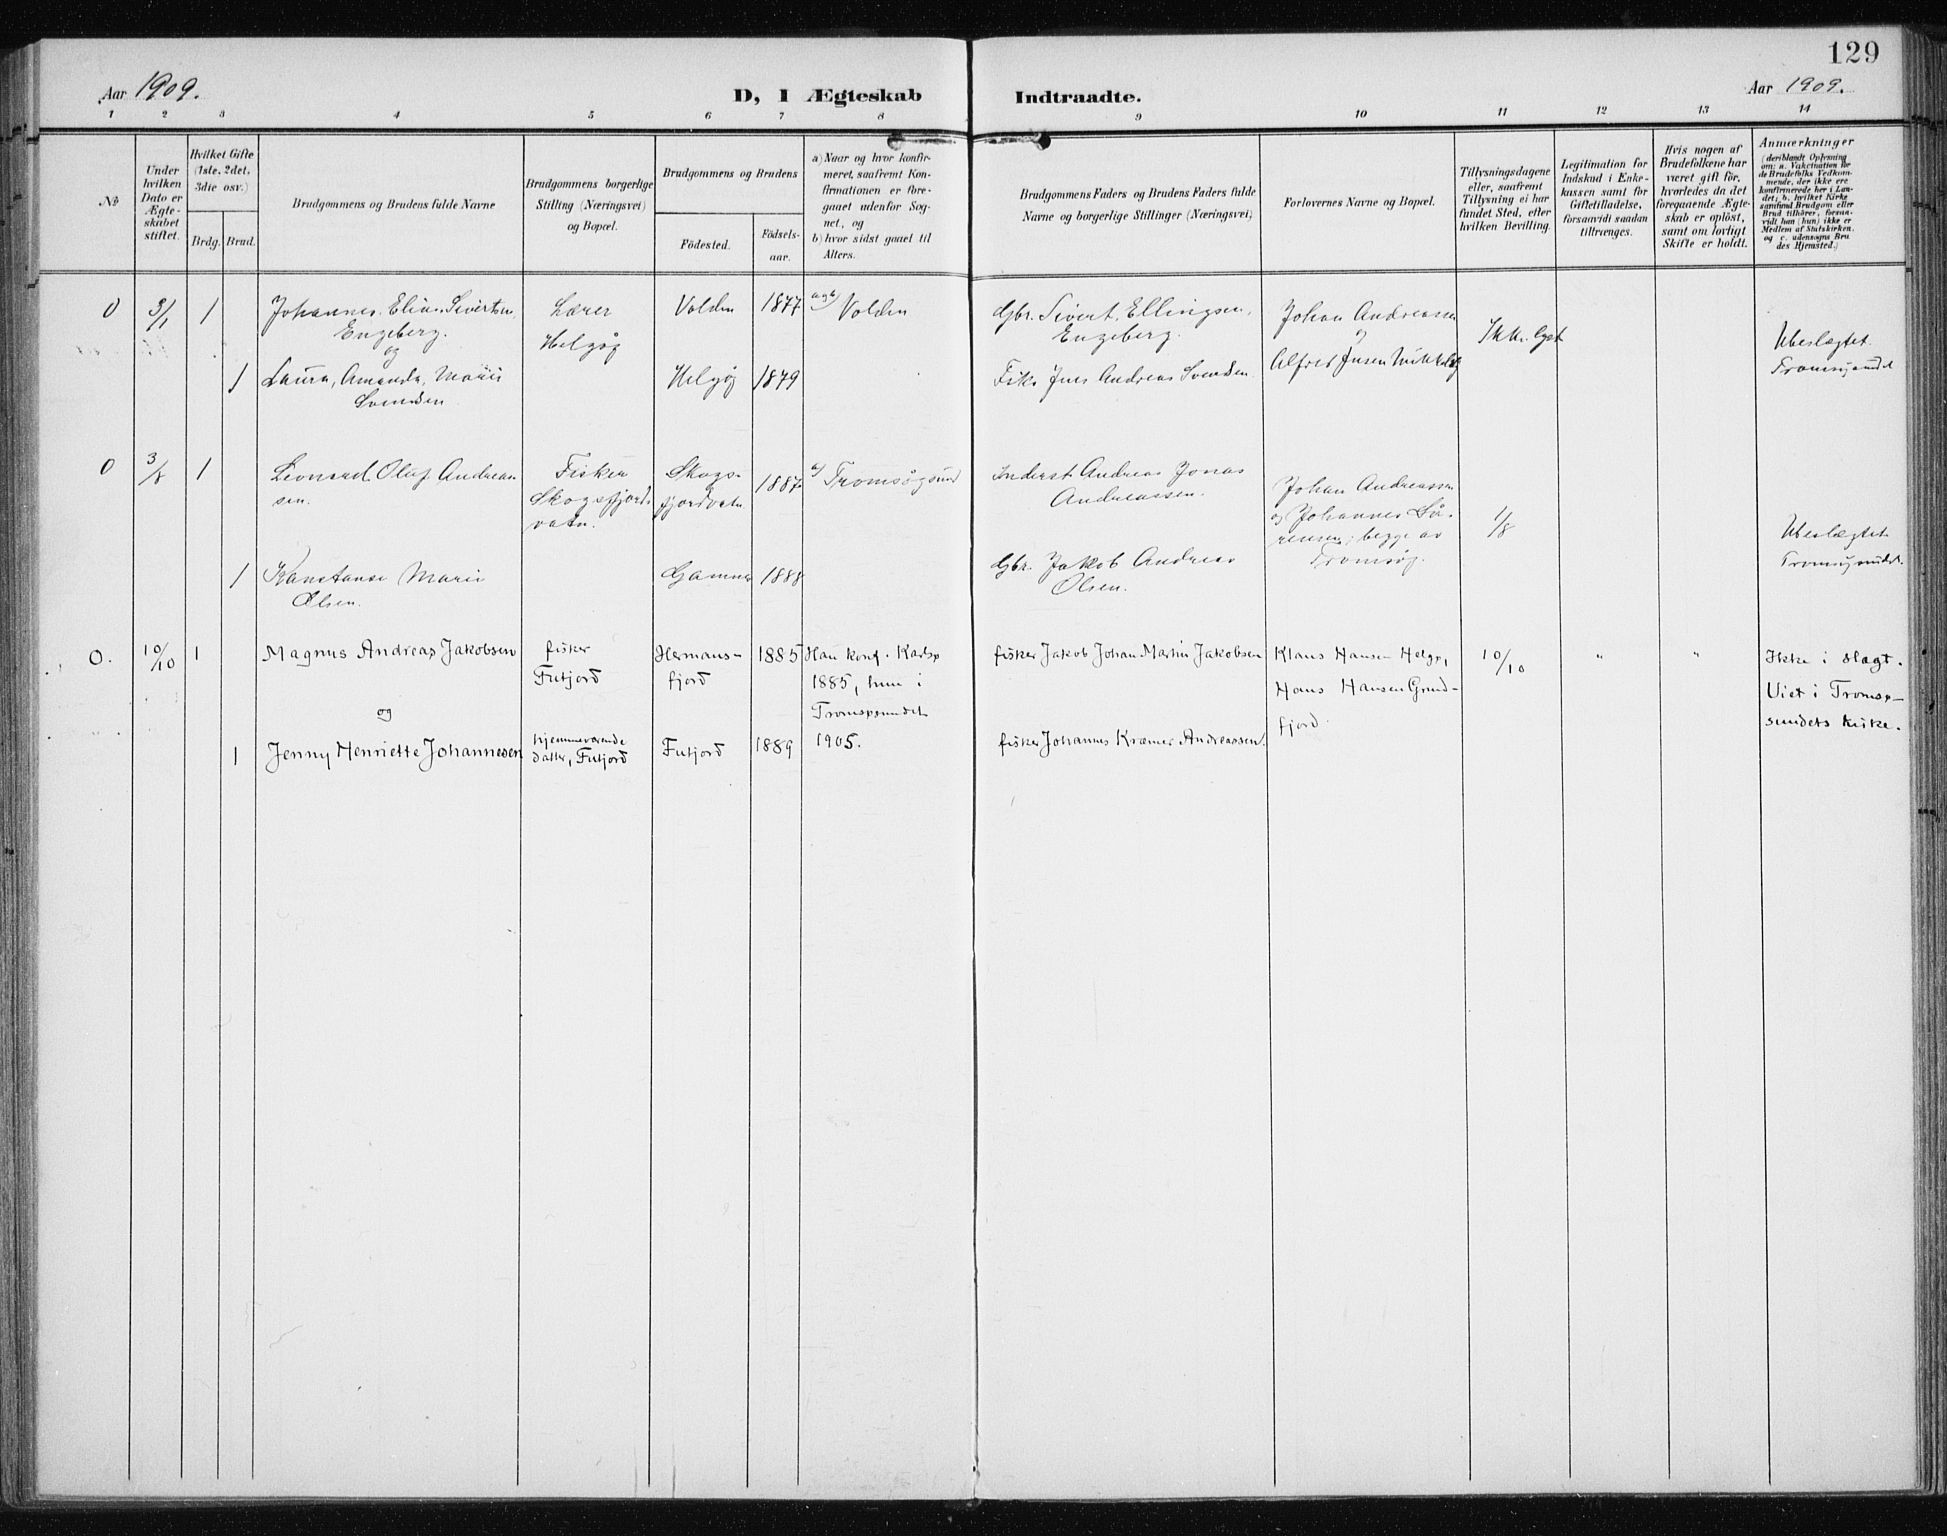 129
Aar 1909.
D, I Ægteskab Indtraadte.
Aar 1909.
1 2 3 4 5 6 7 8 9 10 11 12 13 14
№
Under
hvilken
Dato er
Ægte-
skabet
stiftet.
Hvilket Gifte
(1ste, 2det,
3die osv.)
Brdg.
Brud.
Brudgommens og Brudens fulde Navne
Brudgommens borgerlige
Stilling (Næringsvei)
og Bopæl.
Brudgommens og Brudens
Födested.
Födsels-
aar.
a) Naar og hvor konfir-
meret, saafremt Kon-
firmationen er fore-
gaaet udenfor Sog-
net, og
b) hvor sidst gaaet til
Alters.
Brudgommens Faders og Brudens Faders fulde
Navne og borgerlige Stillinger (Næringsvei)
Forlovernes Navne og Bopæl.
Tillysningsdagene
eller, saafremt
Tillysning ei har
fundet Sted, efter
hvilken Bevilling.
Legitimation for
Indskud i Enke-
kassen samt for
Giftetilladelse,
forsaavidt saadan
tiltrænges.
Hvis nogen af
Brudefolkene har
været gift för,
hvorledes da det
foregaaende Ægte-
skab er oplöst,
samt om lovligt
Skifte er holdt.
Anmærkninger
(deriblandt Oplysning
om: a. Vakcination för
de Brudefolks Vedkom-
mende, der ikke ere
konfirmerede her i Lan-
det; b. hvilket Kirke
samfund Brudgom eller
Brud tilhörer, forsaa-
vidt han (hun) ikke er
Medlem af Statskirken.
og c. udensogns Bru
des Hjemsted.)
0 3/1 1 Johannes Elias Sivertsen
Engeberg.
og
Lærer
Helgøy
Volden 1877 Volden
Gbr. Sivert Ellingsen
Engeberg.
Johan Andreassen
og
Alfred Jensen
Ikke lyst
Ubeslægtet
Tromsøsundet
1 Laura, Amanda, Marie
Svendsen
Helgøy 1879
Fisk. Jens Andreas Svendsen
0 3/8 1 Leonard Oluf Andreas
sen.
Fisker
Skogsfjord-
vatn.
Skogs-
fjordvatn
1887 a) Tromsøysund
Inderst Andreas Jonas
Andreassen.
Johan Andreassen
og Johannes Sø-
rensen, begge av
Tromsøy.
1/8
Ubeslægtet
Tromsøsundet.
1 Konstanse Marie
Olsen.
Gamnes 1888
Gbr. Jakob Andreas
Olsen.
0. 10/10 1 Magnus Andreas Jakobsen
og
fisker
Futjord
Hermans-
fjord
1885
Han konf. Karlsø
1885, hun i
Tromsøsundet
1905.
fisker Jakob Johan Martin Jakobsen
Klaus Hansen Helgø,
Hans Hansen Grund-
fjord.
10/10 " "
Ikke i slægt.
Viet i Tromsø-
sundets kirke.
1 Jenny Henriette Johannesen
hjemmeværende
datter, Futjord
Futjord 1889
fisker Johannes Kræmer Andreassen.